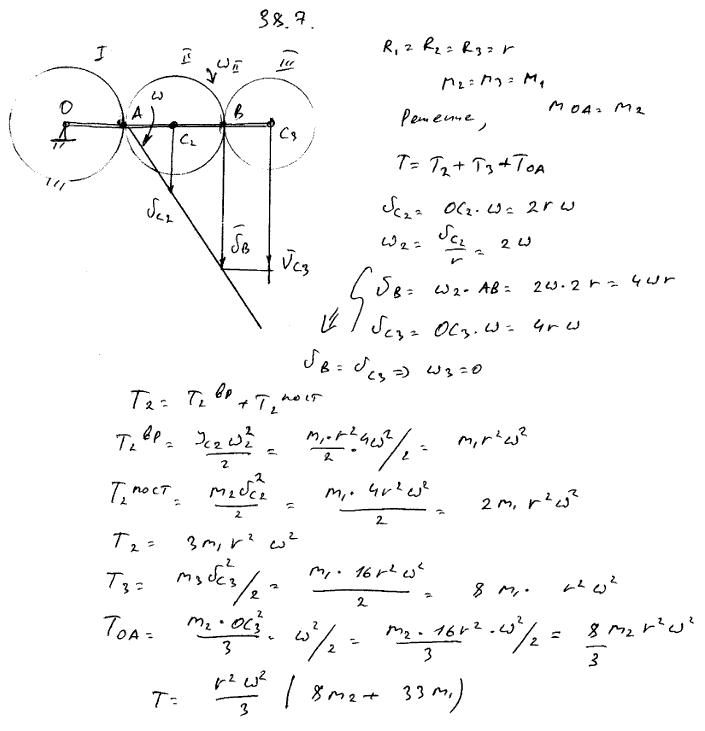 38.7.
I II ω_II III
O A ω B C₂ C₃
υ_C2 ῡ_B ῡ_C3
R₁ = R₂ = R₃ = r
m₂ = m₃ = M₁
Решение, m OA = m₂
T = T₂ + T₃ + T_OA
υ_C2 = OC₂ · ω = 2rω
ω₂ = υ_C2 / r = 2ω
υ_B = ω₂ · AB = 2ω · 2r = 4ωr
υ_C3 = OC₃ · ω = 4rω
υ_B = υ_C3 ⇒ ω₃ = 0
T₂ = T₂^вр + T₂^пост
T₂^вр = J_C2 ω₂² / 2 = m₁ · r² / 2 · 4ω² / 2 = m₁r²ω²
T₂^пост = m₂υ_C2² / 2 = m₁ · 4r²ω² / 2 = 2m₁r²ω²
T₂ = 3m₁r²ω²
T₃ = m₃υ_C3² / 2 = m₁ · 16r²ω² / 2 = 8 m₁ · r²ω²
T_OA = m₂ · OC₃² / 3 · ω² / 2 = m₂ · 16r² · ω² / 3 / 2 = 8/3 m₂r²ω²
T = r²ω² / 3 ( 8m₂ + 33m₁ )